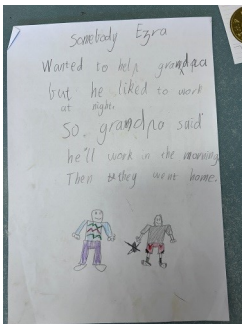 Somebody Ezra
Wanted to help grandpa
but he liked to work
at night.
So grandpa said
he'll work in the morning
Then they went home.